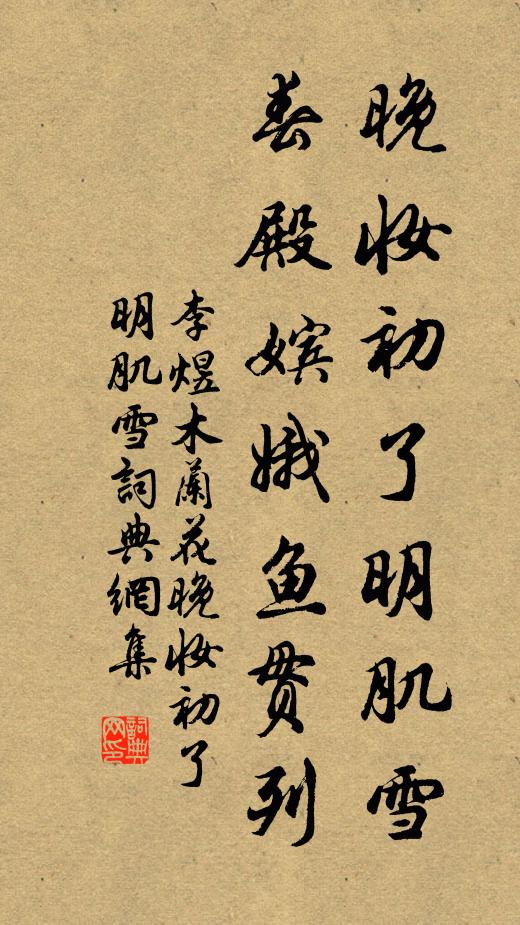 晚妆初了明肌雪
春殿嫔娥鱼贯列
李煜木蘭花晚妆初了
明肌雪詞典網集
詞典
网印